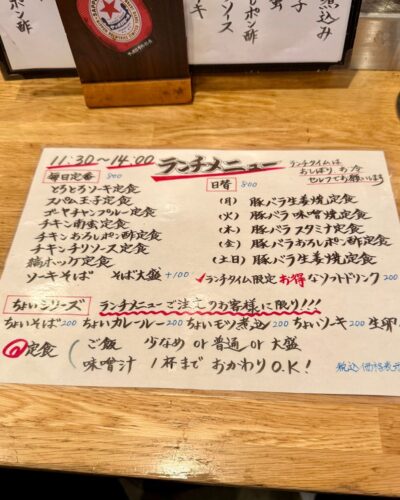 煮込み
ポン酢
ソイス
しポン酢
ーキ
11:30～14:00 ランチメニュー
ランチタイムは
おしぼり お冷
セルフでお願いします
毎日定番 800
とろとろソーキ定食
スパム玉子定食
ゴーヤチャンプルー定食
チキン南蛮定食
チキンおろしポン酢定食
チキンチリソース定食
縞ホッケ定食
ソーキそば そば大盛 +100
日替 800
(月) 豚バラ生姜焼定食
(火) 豚バラ味噌焼定食
(木) 豚バラスタミナ定食
(金) 豚バラおろしポン酢定食
(土日) 豚バラ生姜焼定食
ランチタイム限定 お得なソフトドリンク 200
ちょいシリーズ ランチメニューご注文のお客様に限り!!!
ちょいそば200 ちょいカレールー200 ちょいモツ煮込200 ちょいソーキ200 生卵
定食 ご飯 少なめ or 普通 or 大盛
味噌汁 1杯まで おかわりO.K!
税込価格表示